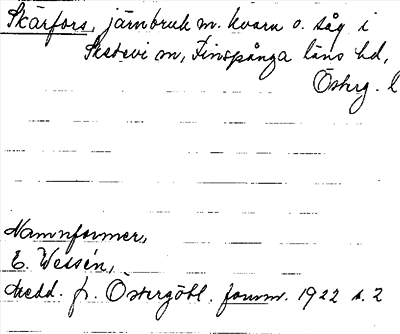 Skärfors, järnbruk m. kvarn o. såg i
Skedevi sn, Finspånga läns hd,
Österg. l
Namnformer,
E. Wessén,
Medd. fr. Östergötl. fornm. 1922 s. 2